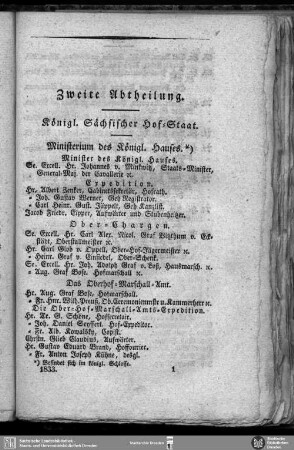 Zweite Abtheilung.
Königl. Sächsischer Hof-Staat.
Ministerium des Königl. Hauses.*)
Minister des Königl. Hauses.
Se. Excell. Hr. Johannes v. Minkwitz, Staats-Minister,
General-Maj. der Cavallerie ꝛc.
Expedition.
Hr. Albert Zenker, Cabinetssekretär, Hofrath.
= Joh. Gustav Werner, Geh. Registrator.
= Carl Heinr. Gust. Geh. Kanzlist.
Jacob Friedr. Aufwärter und Stubenheitzer.
Ober-Chargen.
Se. Excell. Hr. Carl Alex. Nicol. Graf Vitzthum v. Eck-
städt, Oberstallmeister ꝛc.
Hr. Carl Glob v. Oppell, Ober-Hof-Jägermeister ꝛc.
= Heinr. Graf v. Einsiedel, Ober-Schenk.
Se. Excell. Hr. Joh. Adolph Graf v. Loß, Hausmarsch. ꝛc.
= Aug. Graf Bose, Hofmarschall ꝛc.
Das Oberhof-Marschall-Amt.
Hr. Aug. Graf Bose, Hofmarschall.
= Fr. Hrm. Wilh. Preuß, Ob. Ceremonienmstr u. Kammerherr ꝛc.
Die Ober-Hof-Marschall-Amts-Expedition.
Hr. Fr. G. Schöne, Hofsecretair.
= Joh. Daniel Seyffert, Hof-Expeditor.
= Fr. Alb. Kowalsky, Copist.
Christn. Glieb Claudius, Aufwärter.
Hr. Gustav Eduard Brand, Hoffourier.
= Fr. Anton Joseph Kühne, desgl.
*) Befindet sich im Königl. Schlosse.
1833. 1